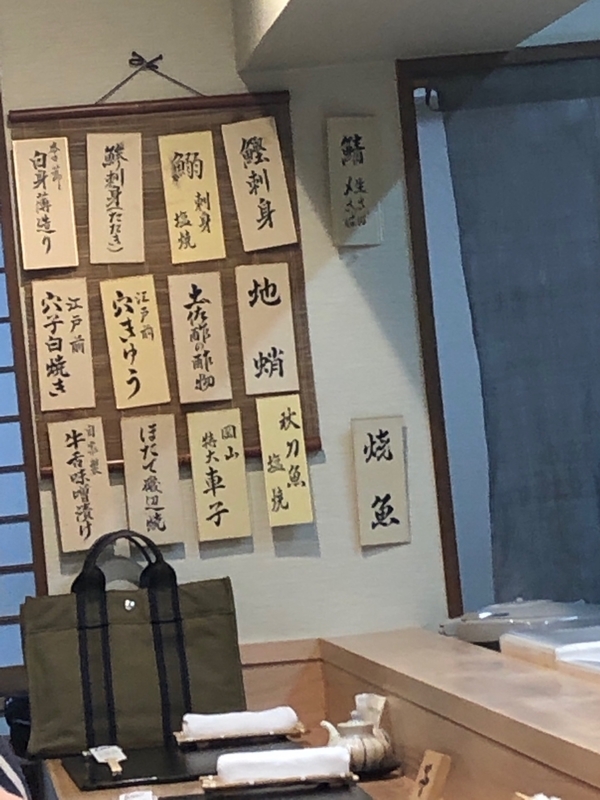 鰹刺身
鰯 刺身
塩焼
鯵刺身(たたき)
白身薄造り
地蛸
土佐酢の酢物
江戸前
穴きゅう
江戸前
穴子白焼き
秋刀魚
塩焼
岡山
特大車子
ほたて磯辺焼
自家製
牛舌味噌漬け
鯖
焼魚